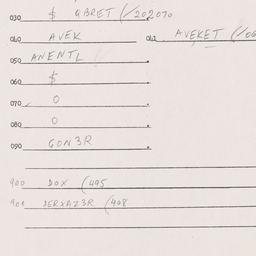 030 $ QBRET (/202070
040 AVEK 042 AVEKET (/06
050 ANENTL
060 $
070 0
080 0
090 GON3R
900 DOX (495
901 DERXAZ3R (408